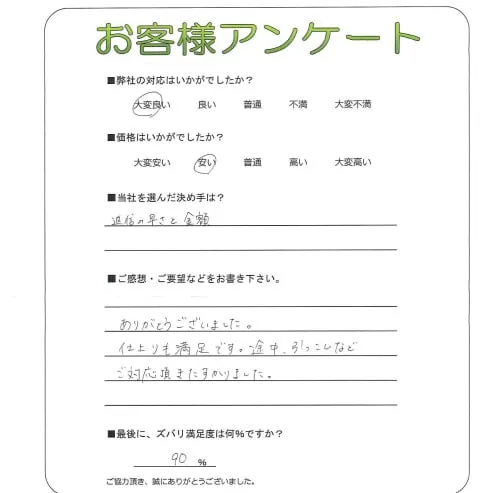 お客様アンケート
■弊社の対応はいかがでしたか？
大変良い 良い 普通 不満 大変不満
■価格はいかがでしたか？
大変安い 安い 普通 高い 大変高い
■当社を選んだ決め手は？
返信の早さと金額
■ご感想・ご要望などをお書き下さい。
ありがとうございました。
仕上りも満足です。途中、引っこしなど
ご対応頂きたすかりました。
■最後に、ズバリ満足度は何%ですか？
90 %
ご協力頂き、誠にありがとうございました。